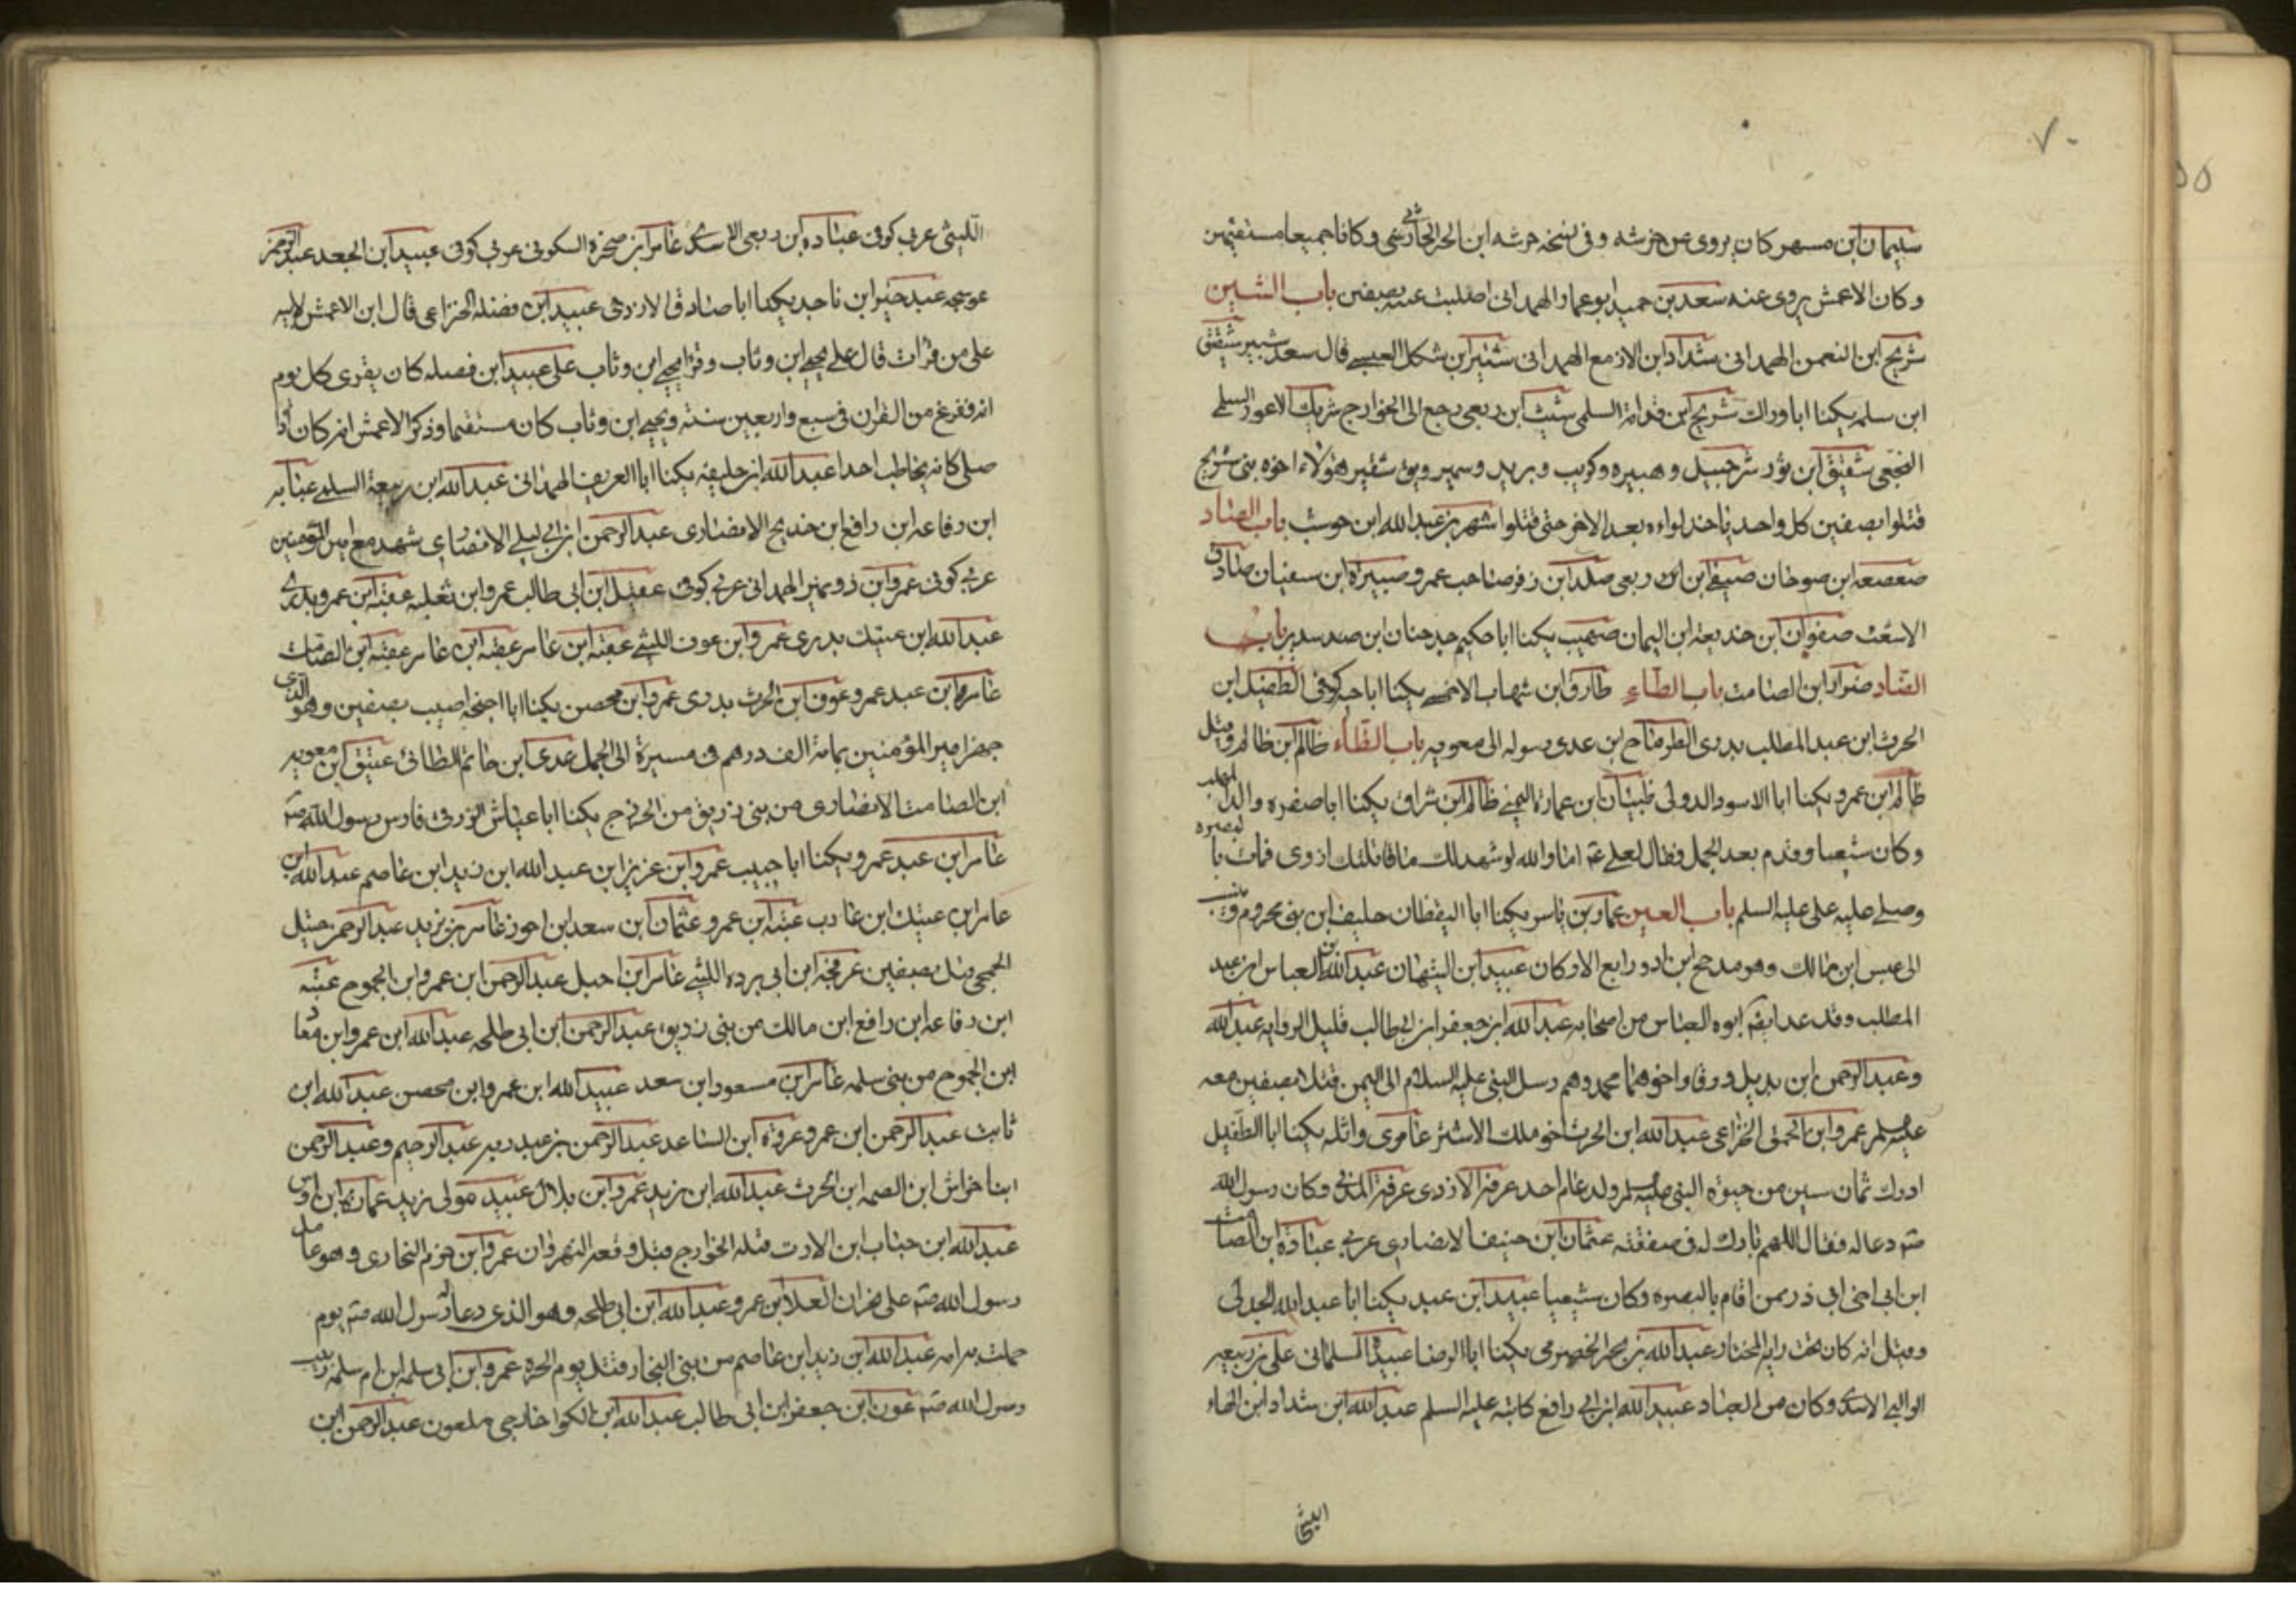 ٧٠
سليمان ابن مسهر كان يروى عن خرشه وفى نسخه حرشه ابن الحر الحارثى وكانا جميعا مستقيمين
وكان الاعمش يروى عنه سعد بن حميد ابو عمار الهمدانى اصلبت عينه بصفين باب الشين
شريح ابن النعمن الهمدانى شداد ابن الازمع الهمدانى شتير ابن شكل العبسے قال سعد شبير شقيق
ابن سلمه يكنا ابا وراك شريح ابن قدامة السلمى شبث ابن ربعى رجع الى الخوارج شريك الاعور السلمے
النخعى شقيق ابن ثور شرحبيل وهبيره وكريب وبريد وسمير ويق شقير هؤلاء اخوه بنى شريح
قتلوا بصفين كل واحد ياخذ لواءه بعد الاخر حتى قتلوا شهر بن عبدالله ابن حوشب باب الصاد
صعصعه ابن صوحان صيفے ابن ربعى صلد ابن زفر صاحب عمر وصبيراة ابن سفيان صادق
الاشعث صفوان ابن حذيفة ابن اليمان صهيب يكنا ابا حكيم جد حنان ابن سدير باب
الضاد ضرار ابن الصامت باب الطاء طارق ابن شهاب الاحمسے يكنا ابا حيه كوفى الطفيل ابن
الحرث ابن عبد المطلب بدرى الطرماح ابن عدى رسوله الى معويه باب الظاء ظالم ابن ظالم وقيل
ظالم ابن عمرو يكنا ابا الاسود الدولى ظبيان ابن عمارة التميمے ظالم ابن شراق يكنا ابا صفره والد المهلب
وكان شيعيا وقدم بعد الجمل فقال لعلے عم اما والله لو شهدتك ما قاتلتك ازدى فمات بالبصره
وصلے عليه على عليه السلم باب العين عمار بن ياسر يكنا ابا اليقظان حليف ابن بنى مخزوم
الى عبس ابن مالك وهو مذحج ابن ادد رابع الاركان عبيد ابن التيهان عبدالله بن العباس ابن عبد
المطلب وقد عد ابوه العباس من اصحابه عبدالله ابن جعفر ابن ابى طالب قليل الروايه عبدالله
وعبدالرحمن ابن بديل وورقا واخوهما محمد وهم رسل النبى عليه السلام الى اليمن قتلا بصفين معه
عمرو ابن الحمق الخزاعى عبدالله ابن الحرث اخو ملك الاشتر عامر بن واثله يكنا ابا الطفيل
ادرك ثمان سنين من حيوة النبى ولد عام احد عرفه الازدى عرفة المدنى وكان رسول الله
صم دعا له فقال اللهم بارك له فى صفقته عثمان ابن حنيف الانصارى عربى عبادة ابن الصامت
ابن اخى ابى ذر ممن اقام بالبصره وكان شيعيا عبيد ابن عبد يكنا ابا عبدالله الجدلى
وقيل انه كان تحت رايه المختار عبدالله بن بحر الحضرمى يكنا ابا الرضا عبيدة السلمانى على بن ربيعه
الوالبے الاسدى وكان من العباد عبيدالله ابن ابى رافع كاتبه عليه السلم عبدالله ابن شداد ابن الهاد
الليثى
الليثى عربى كوفى عباده ابن ربعى الاسدى عامر ابن صخره السكونى عربى كوفى عبيد ابن الجعد
عوسجه عبد خير ابن ناجد يكنا ابا صادق الازدى عبيد ابن فضله الخزاعى قال ابن الاعمش لابيه
على من قرات قال على يحيے ابن وثاب وقرا يحيے ابن وثاب على عبيد ابن فضله كان يقرى كل يوم
ايه ففرغ من القران فى سبع واربعين سنة ويحيے ابن وثاب كان مستقيما وذكر الاعمش انه كان اذا
صلى كانه يخاطب احدا عبدالله ابن خليفة يكنا ابا العريف الهمدانى عبدالله ابن ربيعة السلمے عبايه
ابن رفاعه ابن رافع ابن خديج الانصارى عبدالرحمن ابن ابى ليلے الانصارى شهد مع امير المؤمنين
عربى كوفى عمرو ابن ذومر الهمدانى عربى كوفى عقيل ابن ابى طالب عمرو ابن ثعلبه عقبة ابن عمرو بدرى
عبدالله ابن عتيك بدرى عمرو ابن عوف الليثے عقبة ابن عامر عقبة ابن عامر عقبة ابن الصامت
عامر ابن عبد عمرو عوف ابن الحرث بدرى عمرو ابن محصن يكنا ابا احيحه اصيب بصفين وهو الذى
جهز امير المؤمنين بماية الف درهم فى مسيرة الى الجمل عدى ابن حاتم الطائى عتيق ابن معويه
ابن الصامت الانصارى من بنى زريق من الخزرج يكنا ابا عياش الزرقى فارس رسول الله صم
عامر ابن عبد عمرو يكنا ابا حبيب عمرو ابن عزيز ابن عبدالله ابن زيد ابن عاصم عبدالله ابن
عامر ابن عتيك ابن عازب عتبة ابن عمرو عثمان ابن سعد ابن احوز عامر بن يزيد عبدالرحمن حنبل
الجمحى قتل بصفين عرفجة ابن ابى برده الليثے عامر ابن اجبل عبدالرحمن ابن عمرو ابن الجموح عتبة
ابن رفاعه ابن رافع ابن مالك من بنى زريق عبدالرحمن ابن ابى طلحه عبدالله ابن عمرو ابن معاذ
ابن الجموح من بنى سلمه عامر ابن مسعود ابن سعد عبيدالله ابن عمرو ابن محصن عبدالله ابن
ثابت عبدالرحمن ابن عمرو عروة ابن الساعد عبدالرحمن بن عبد ربه عبدالرحيم وعبدالرحمن
ابنا خراش ابن الصمه ابن الحرث عبدالله ابن يزيد عمرو ابن بلال عبيد مولى زيد عمارة ابن اوس
عبدالله ابن خباب ابن الارت قتله الخوارج قبل وقعه النهروان عمرو ابن حزم النجارى وهو عامل
رسول الله صم على نجران العلا ابن عمرو عبدالله ابن ابى طلحه وهو الذى دعا له رسول الله صم يوم
حملت به امه عبدالله ابن زيد ابن عاصم من بنى النجار فقتل يوم الحرة عمرو ابن ابى سلمه ابن ام سلمه ربيب
رسول الله صم عون ابن جعفر ابن ابى طالب عبدالله ابن الكوا خارجى ملعون عبدالرحمن ابن